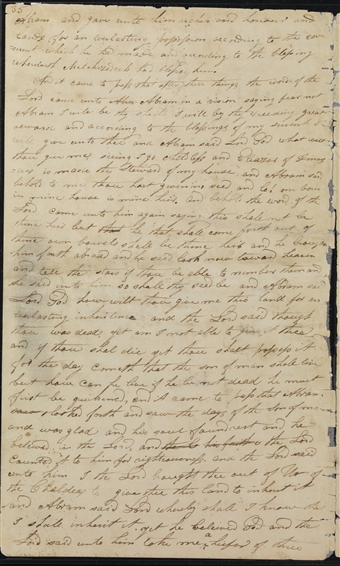 35
Abram and gave unto him riches and honours and
Lands for an everlasting possession according to the cov
enant which he had made and according to the blessing
wherewith Melchizedeck had blessed him
And it came to pass that after these things the word of the
Lord came unto Abram in a vision saying fear not
Abram I will be thy shield I will be thy exceeding great
reward and according to the blessings of my servant I
will give unto thee and Abram said Lord God what will
thou give me seeing I go childless and Eleazer of Damas
cus is made the Steward of my house and Abram said
behold to me thou hast given no seed and lo one born
in mine house is mine heir and behold the word of the
Lord came unto him again saying this shall not be
thine heir but he that shall come forth out of
thine own bowels shall be thine heir and he brought
him forth abroad and he said look now toward heaven
and tell the stars if thou be able to number them and
he said unto him so shall thy seed be and Abram said
Lord God how wilt thou give me this land for an
everlasting inheritance and the Lord said though
thou was dead yet am I not able to give it thee
and if thou shall die yet thou shalt possess it
for the day cometh that the son of man shall live
but how can he live if he be not dead he must
first be quickened, and it came to pass that Abram
looked forth and saw the days of the son of man
and was glad and his soul found rest and he
believed in the Lord and the Lord
counted it to him for righteousness and the Lord said
unto him I the Lord brought thee out of Ur of
the Chaldees to give thee this land to inherit it
and Abram said Lord whereby shall I know that
I shall inherit it yet he believed God and the
Lord said unto him take me a heifer of three